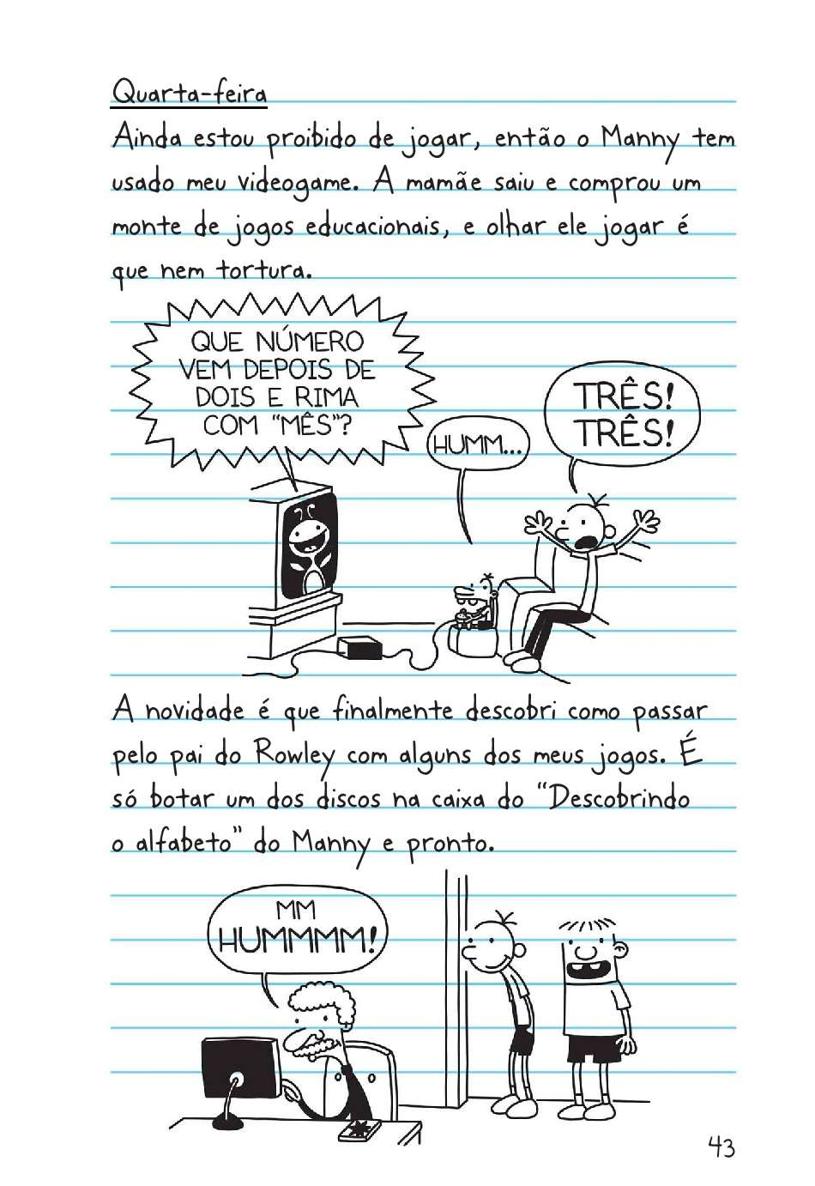 Quarta-feira
Ainda estou proibido de jogar, então o Manny tem
usado meu videogame. A mamãe saiu e comprou um
monte de jogos educacionais, e olhar ele jogar é
que nem tortura.
QUE NÚMERO
VEM DEPOIS DE
DOIS E RIMA
COM “MÊS”?
HUMM...
TRÊS!
TRÊS!
A novidade é que finalmente descobri como passar
pelo pai do Rowley com alguns dos meus jogos. É
só botar um dos discos na caixa do “Descobrindo
o alfabeto” do Manny e pronto.
MM
HUMMMM!
43